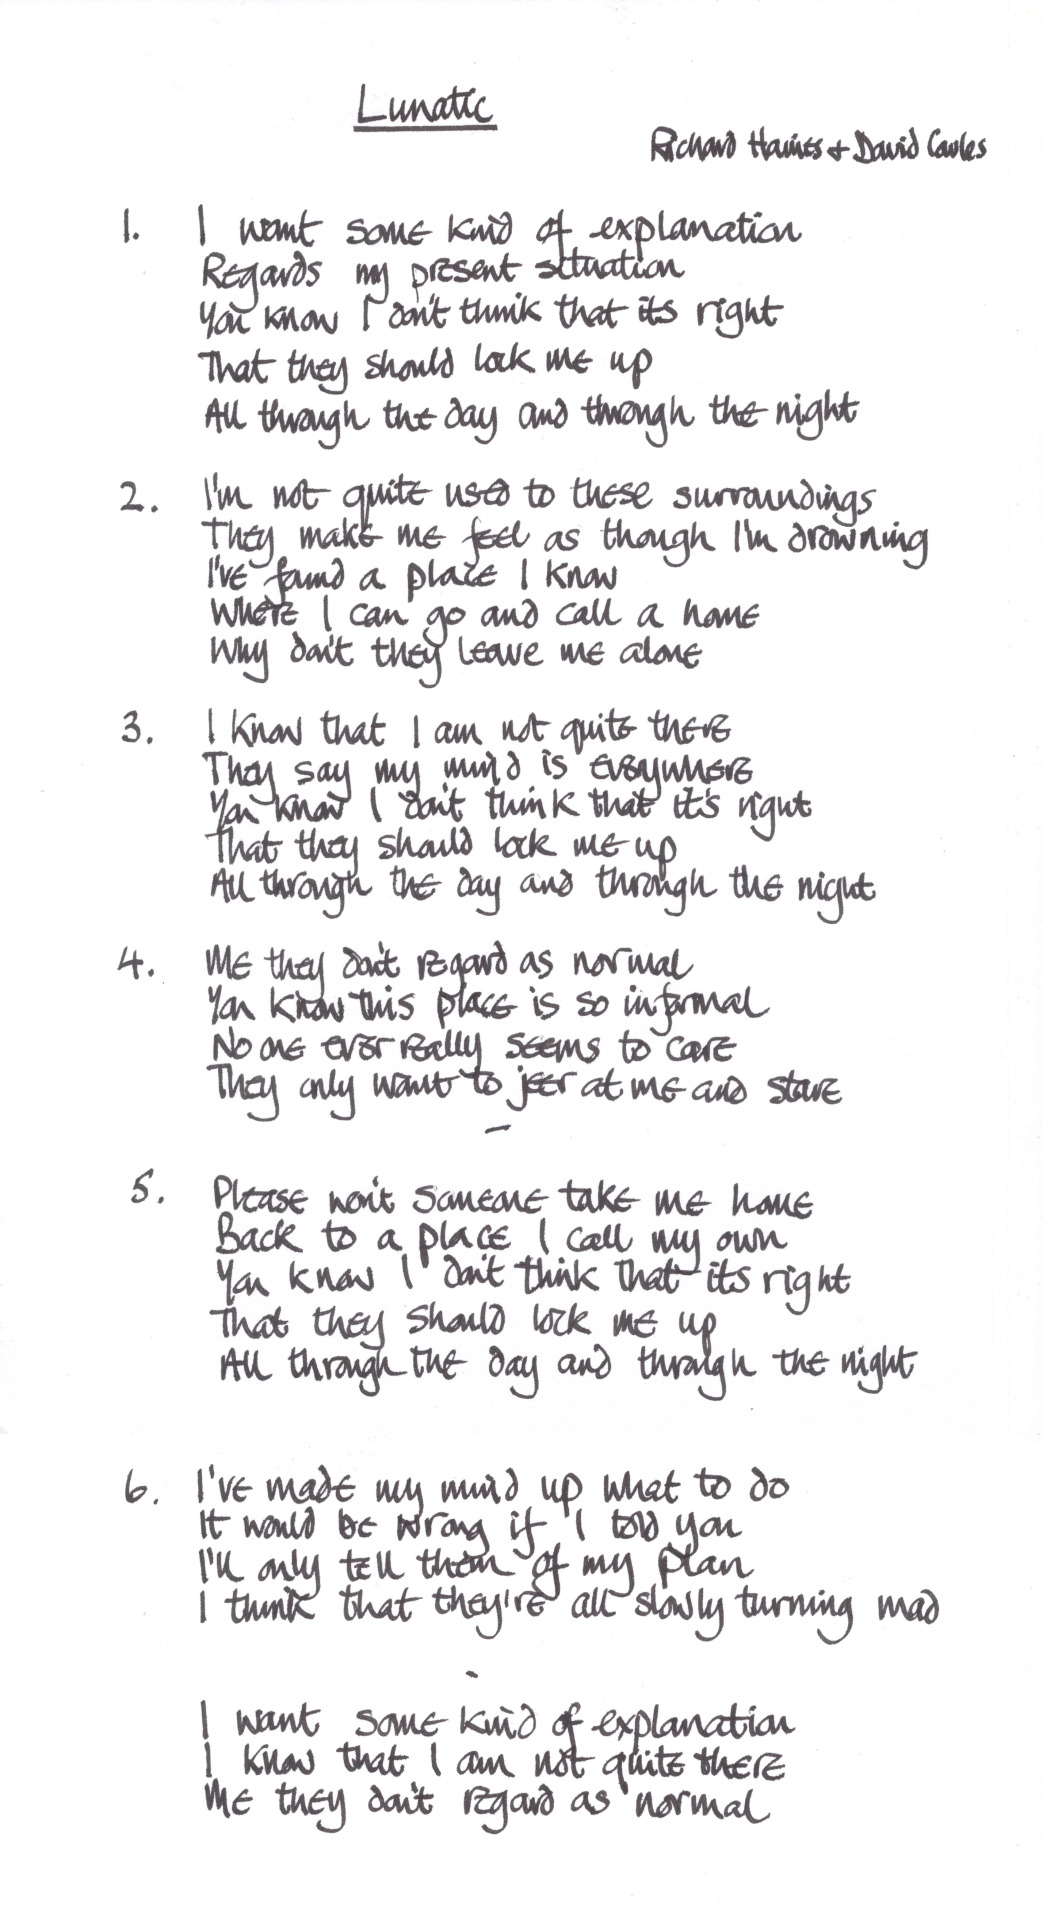 Lunatic
Richard Haines + David Cowles
1. I want some kind of explanation
Regards my present situation
You know I don't think that its right
That they should lock me up
All through the day and through the night
2. I'm not quite used to these surroundings
They make me feel as though I'm drowning
I've found a place I know
Where I can go and call a home
Why don't they leave me alone
3. I know that I am not quite there
They say my mind is everywhere
You know I don't think that it's right
That they should lock me up
All through the day and through the night
4. Me they don't regard as normal
You know this place is so informal
No one ever really seems to care
They only want to jeer at me and stare
-
5. Please won't someone take me home
Back to a place I call my own
You know I don't think that its right
That they should lock me up
All through the day and through the night
6. I've made my mind up what to do
It would be wrong if I told you
I'll only tell them of my plan
I think that they're all slowly turning mad
-
I want some kind of explanation
I know that I am not quite there
Me they don't regard as normal